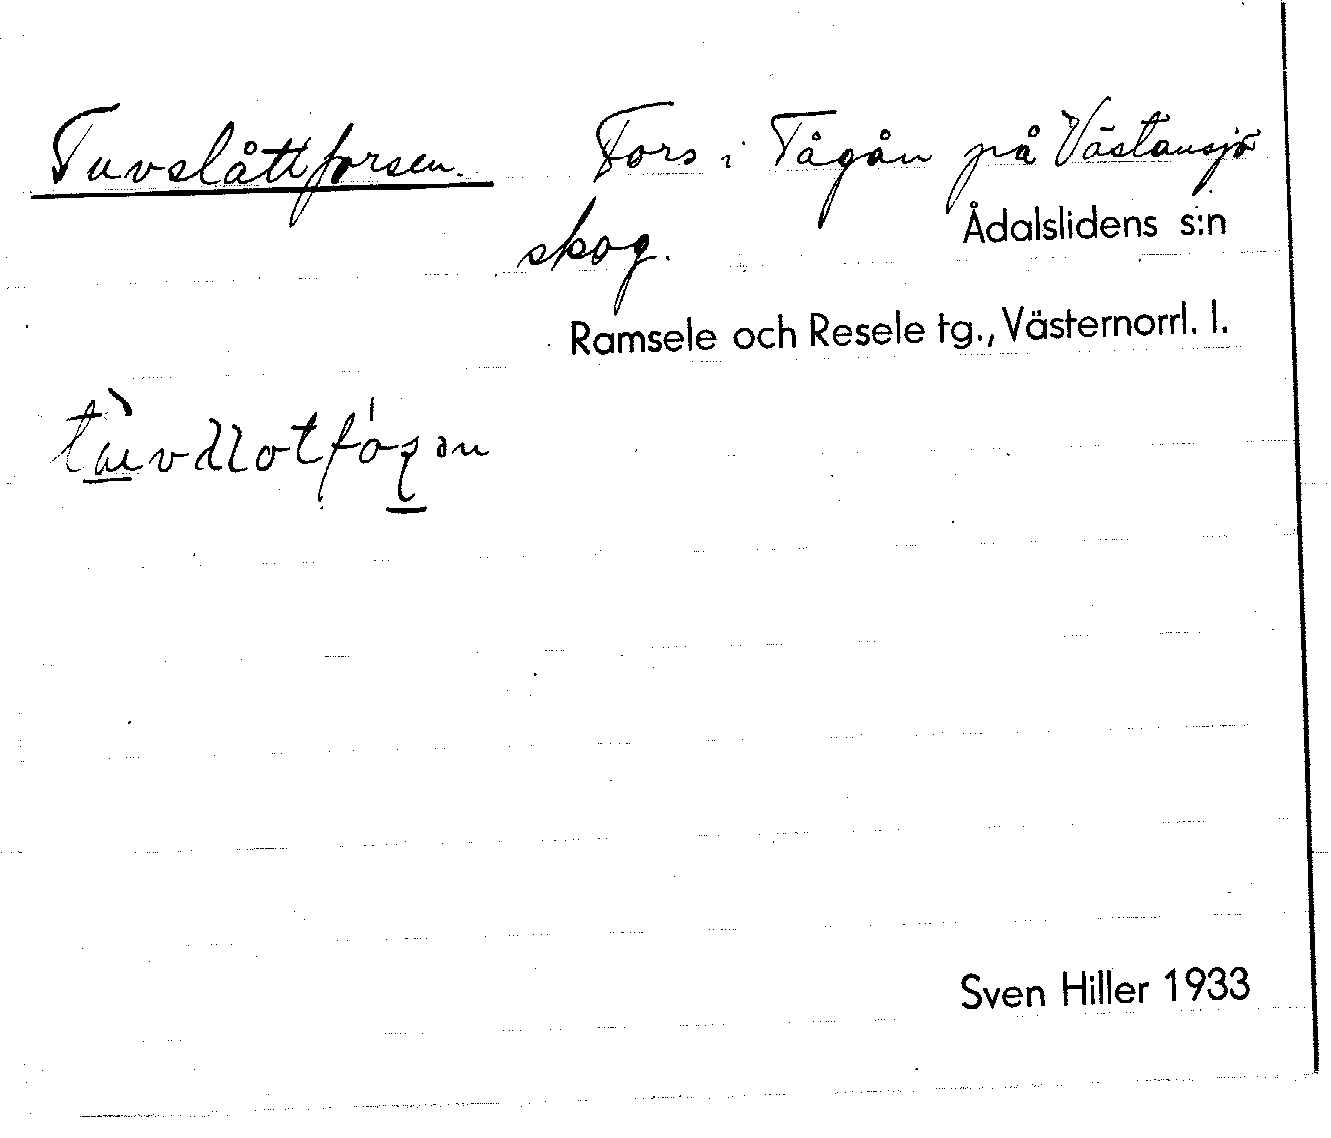 Tuvslåttforsen. Fors i Tågån på Västansjö
skog. Ådalslidens s:n
Ramsele och Resele tg., Västernorrl. l.
Sven Hiller 1933